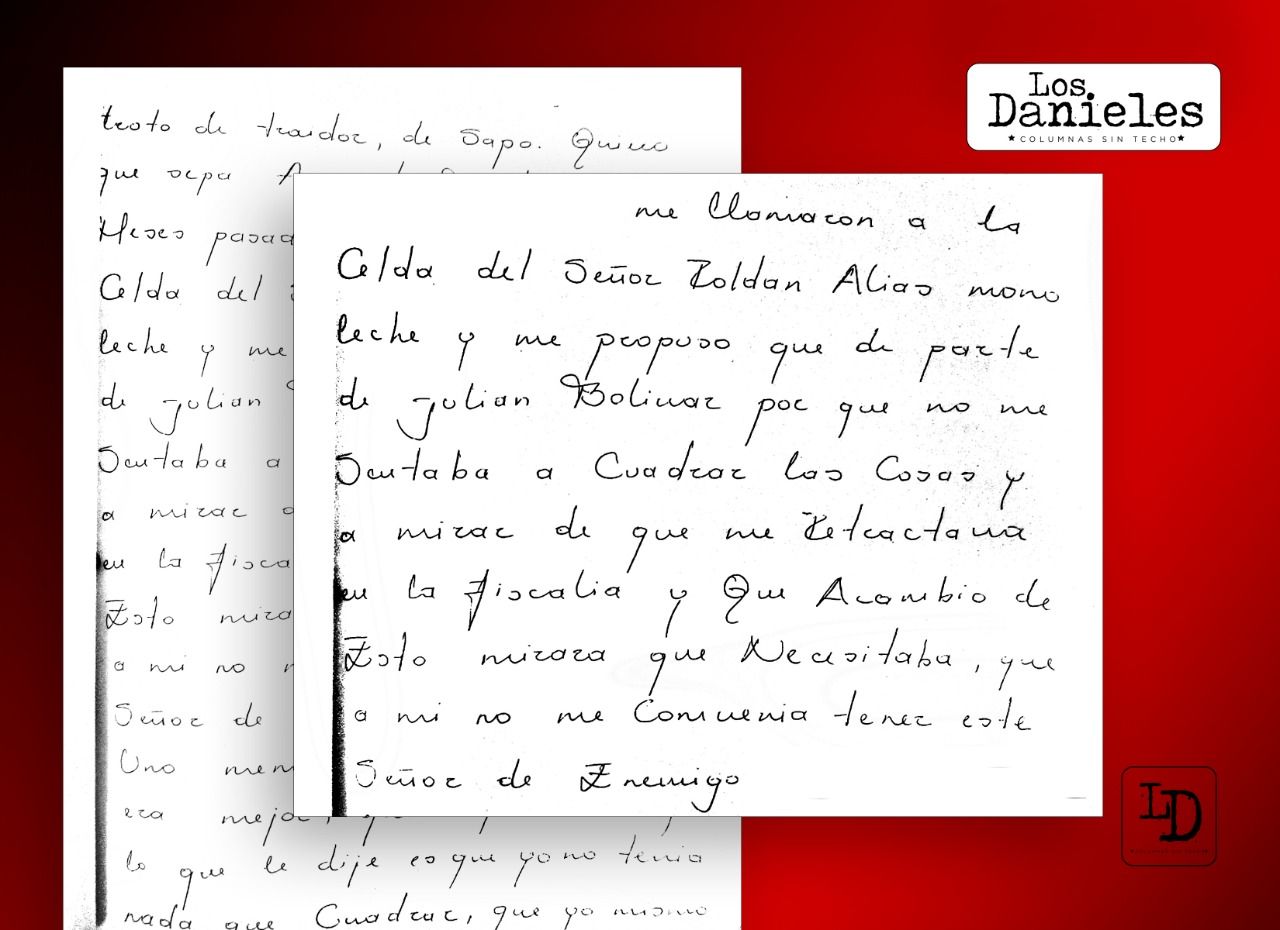 Los
Danieles
★COLUMNAS SIN TECHO★
trato de traidor, de Sapo. Quiero
que sepa
Meses pasad
Celda del
leche y me
de julian
Sentaba a
a mirar
en la fisca
Esto mira
a mi no
Señor de
Uno men
era mejor,
lo que le dije es que yo no tenia
nada que Cuadrar, que yo mismo
me llamaron a la
Celda del Señor Roldan Alias mono
leche y me propuso que de parte
de julian Bolivar por que no me
Sentaba a Cuadrar las Cosas y
a mirar de que me Retractara
en la fiscalia y Que Acambio de
Esto mirara que Necesitaba, que
a mi no me Convenia tener este
Señor de Enemigo
LD